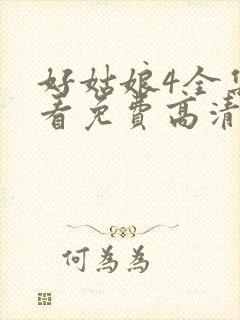 好姑娘4全
看免费高清
何為為